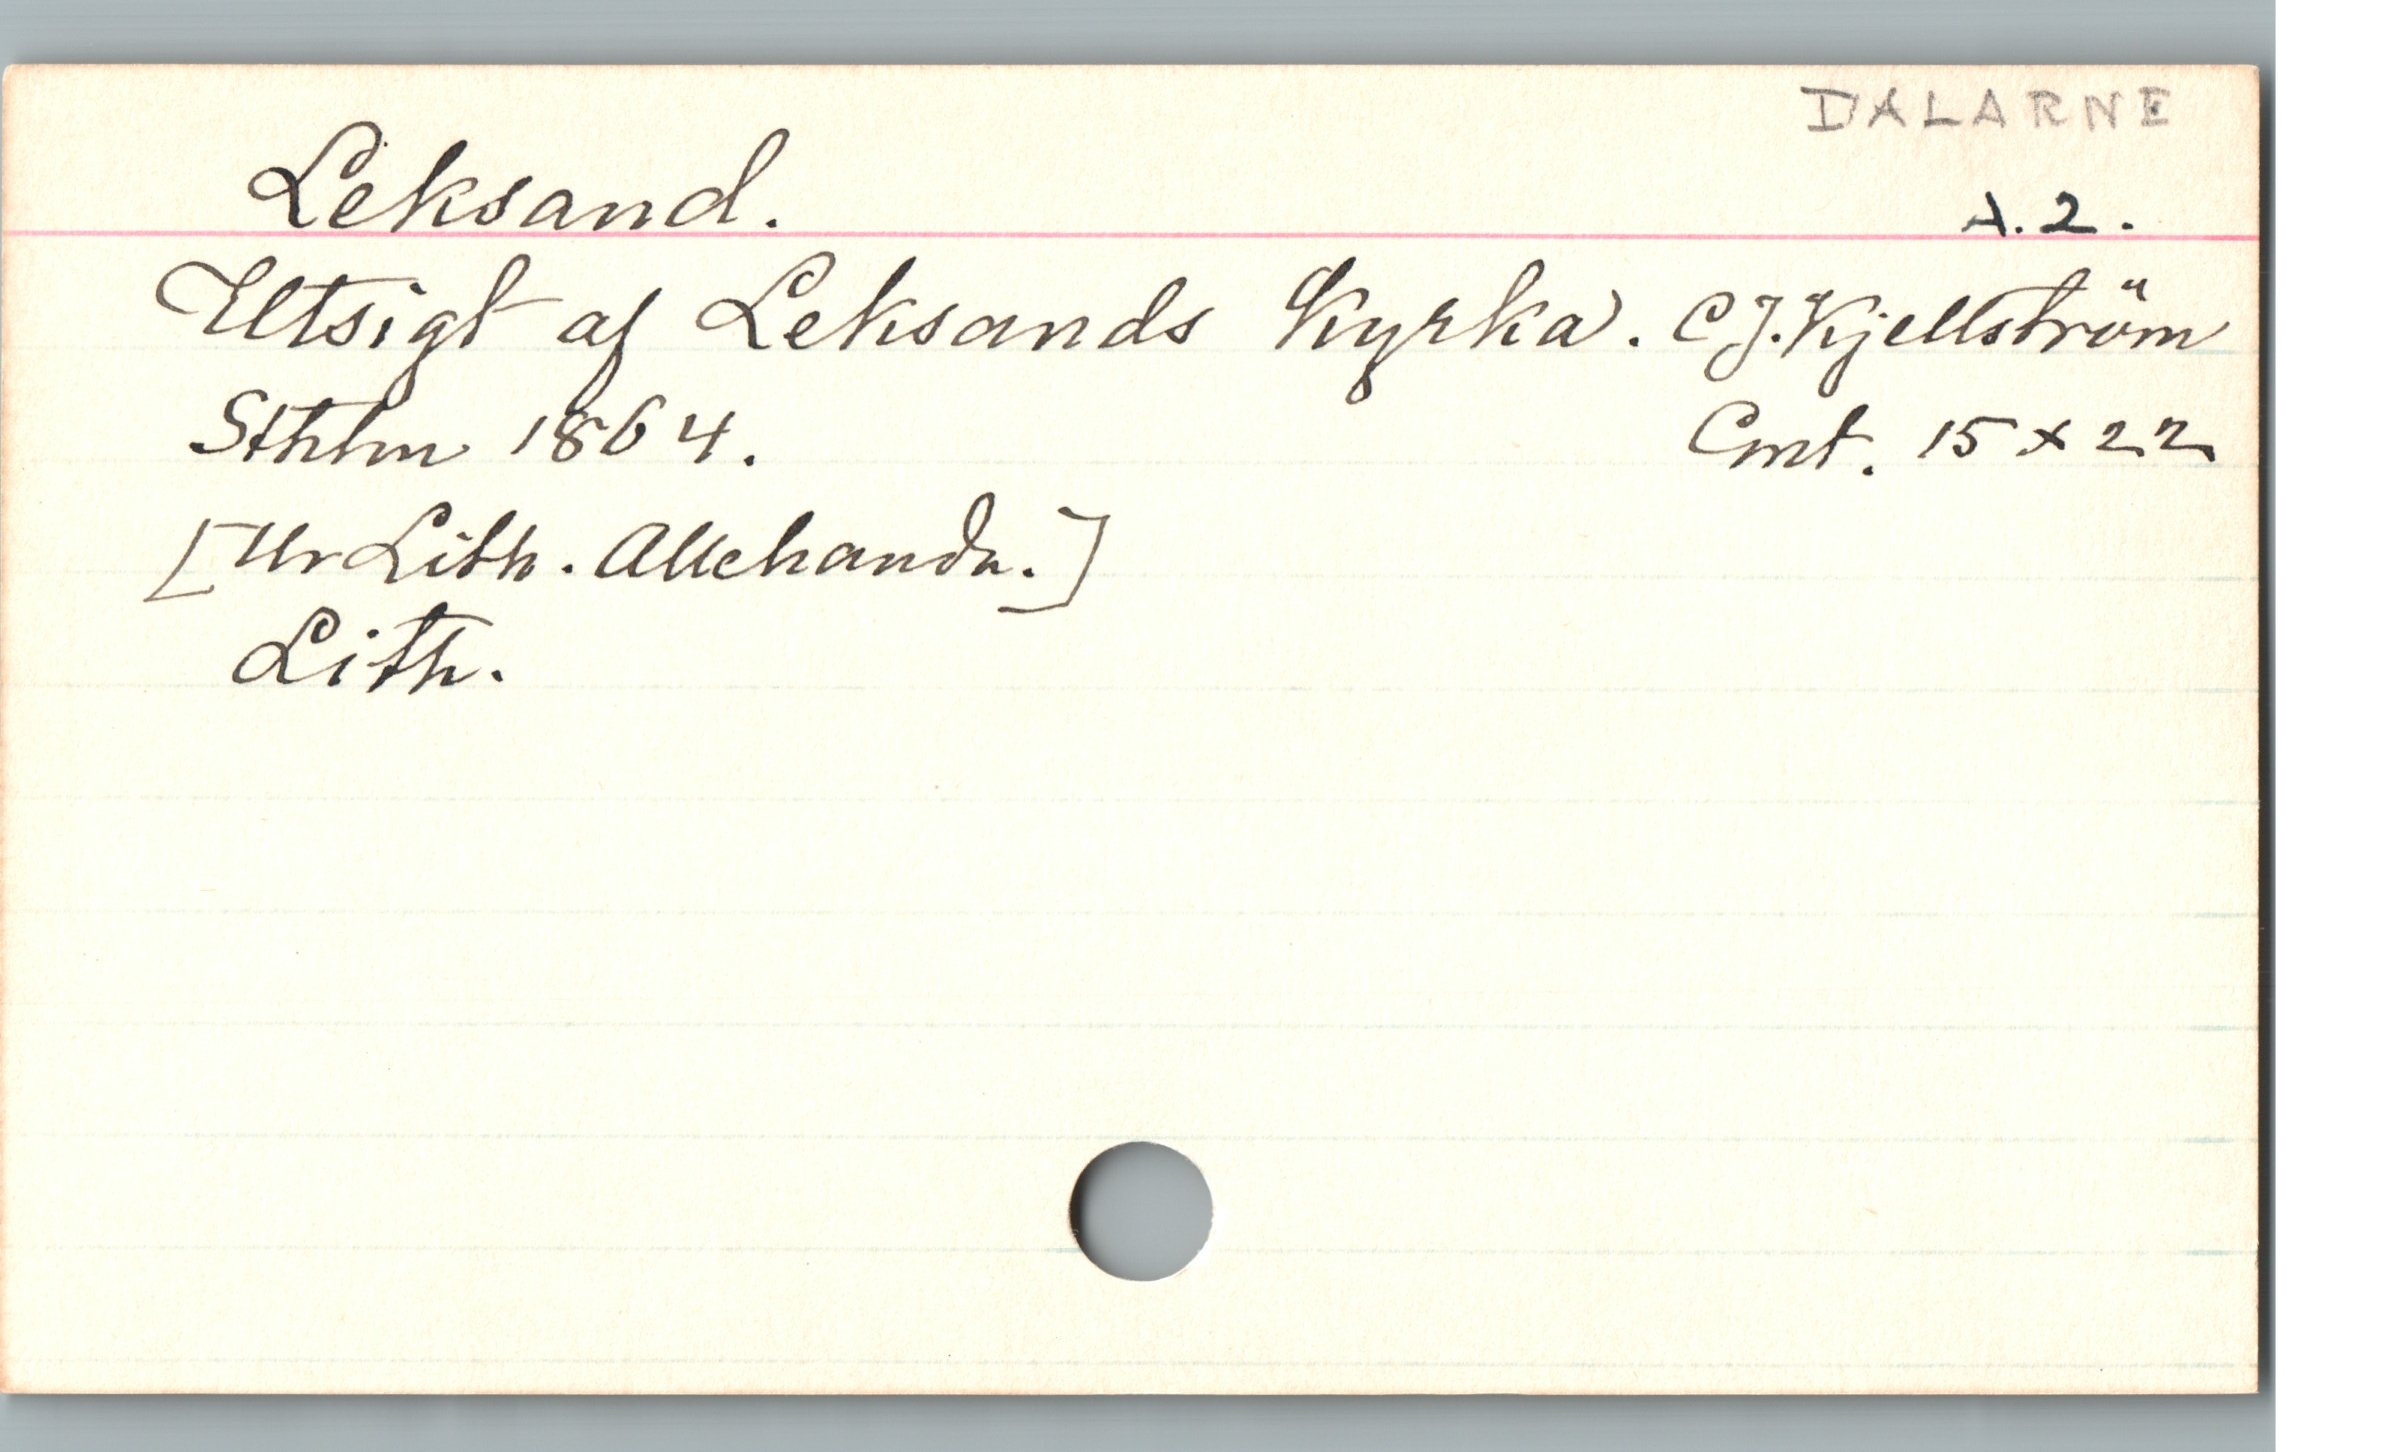 DALARNE
Leksand. A. 2.
Utsigt af Leksands Kyrka. C J. Kjellström
Sthlm 1864. Cmt. 15 x 22
[Ur Lith. Allehanda.]
Lith.